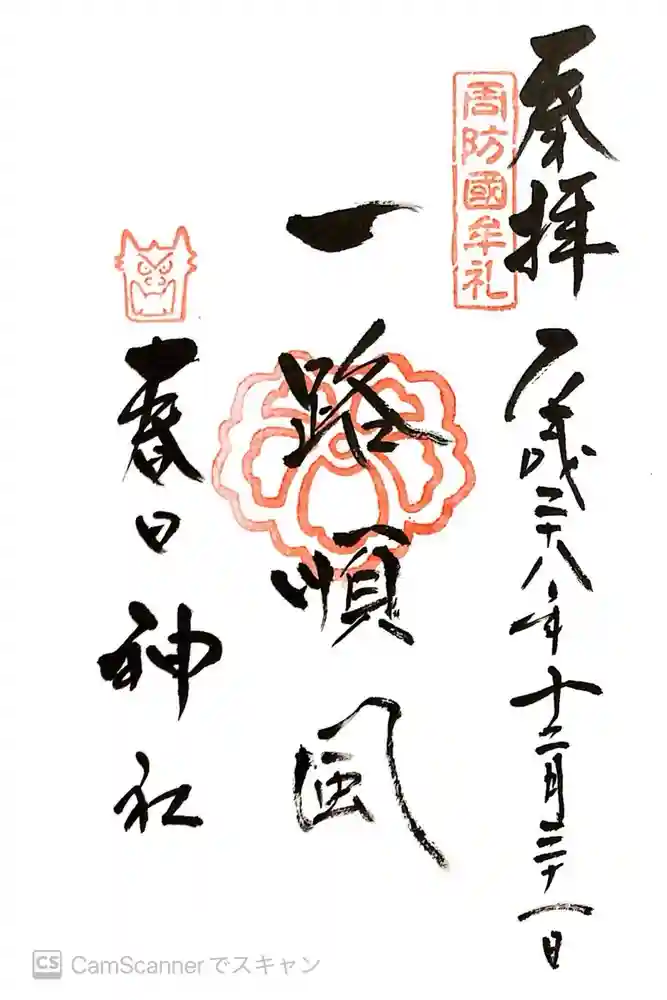 奉拝
平成二十八年十二月三十一日
周防國牟礼
一路順風
春日神社
CS CamScannerでスキャン